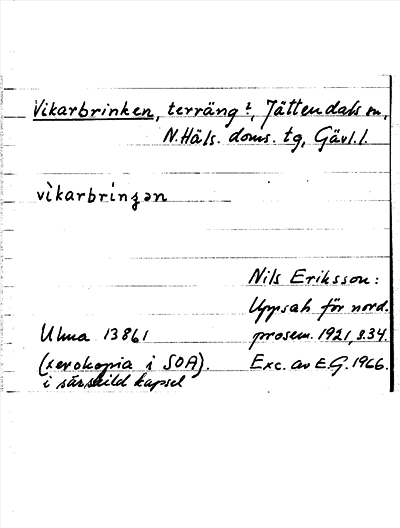 Vikarbrinken, terräng?, Jättendals sn,
N. Häls. doms. tg, Gävl. l.
vìkarbrìŋʒən
Nils Eriksson:
Uppsats för nord.
Ulma 13861 prosem. 1921, s. 34.
(xerokopia i SOA). Exc. av E.G. 1966.
i särskild kapsel